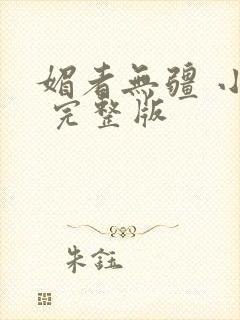 媚者無疆 小
完整版
朱鈺